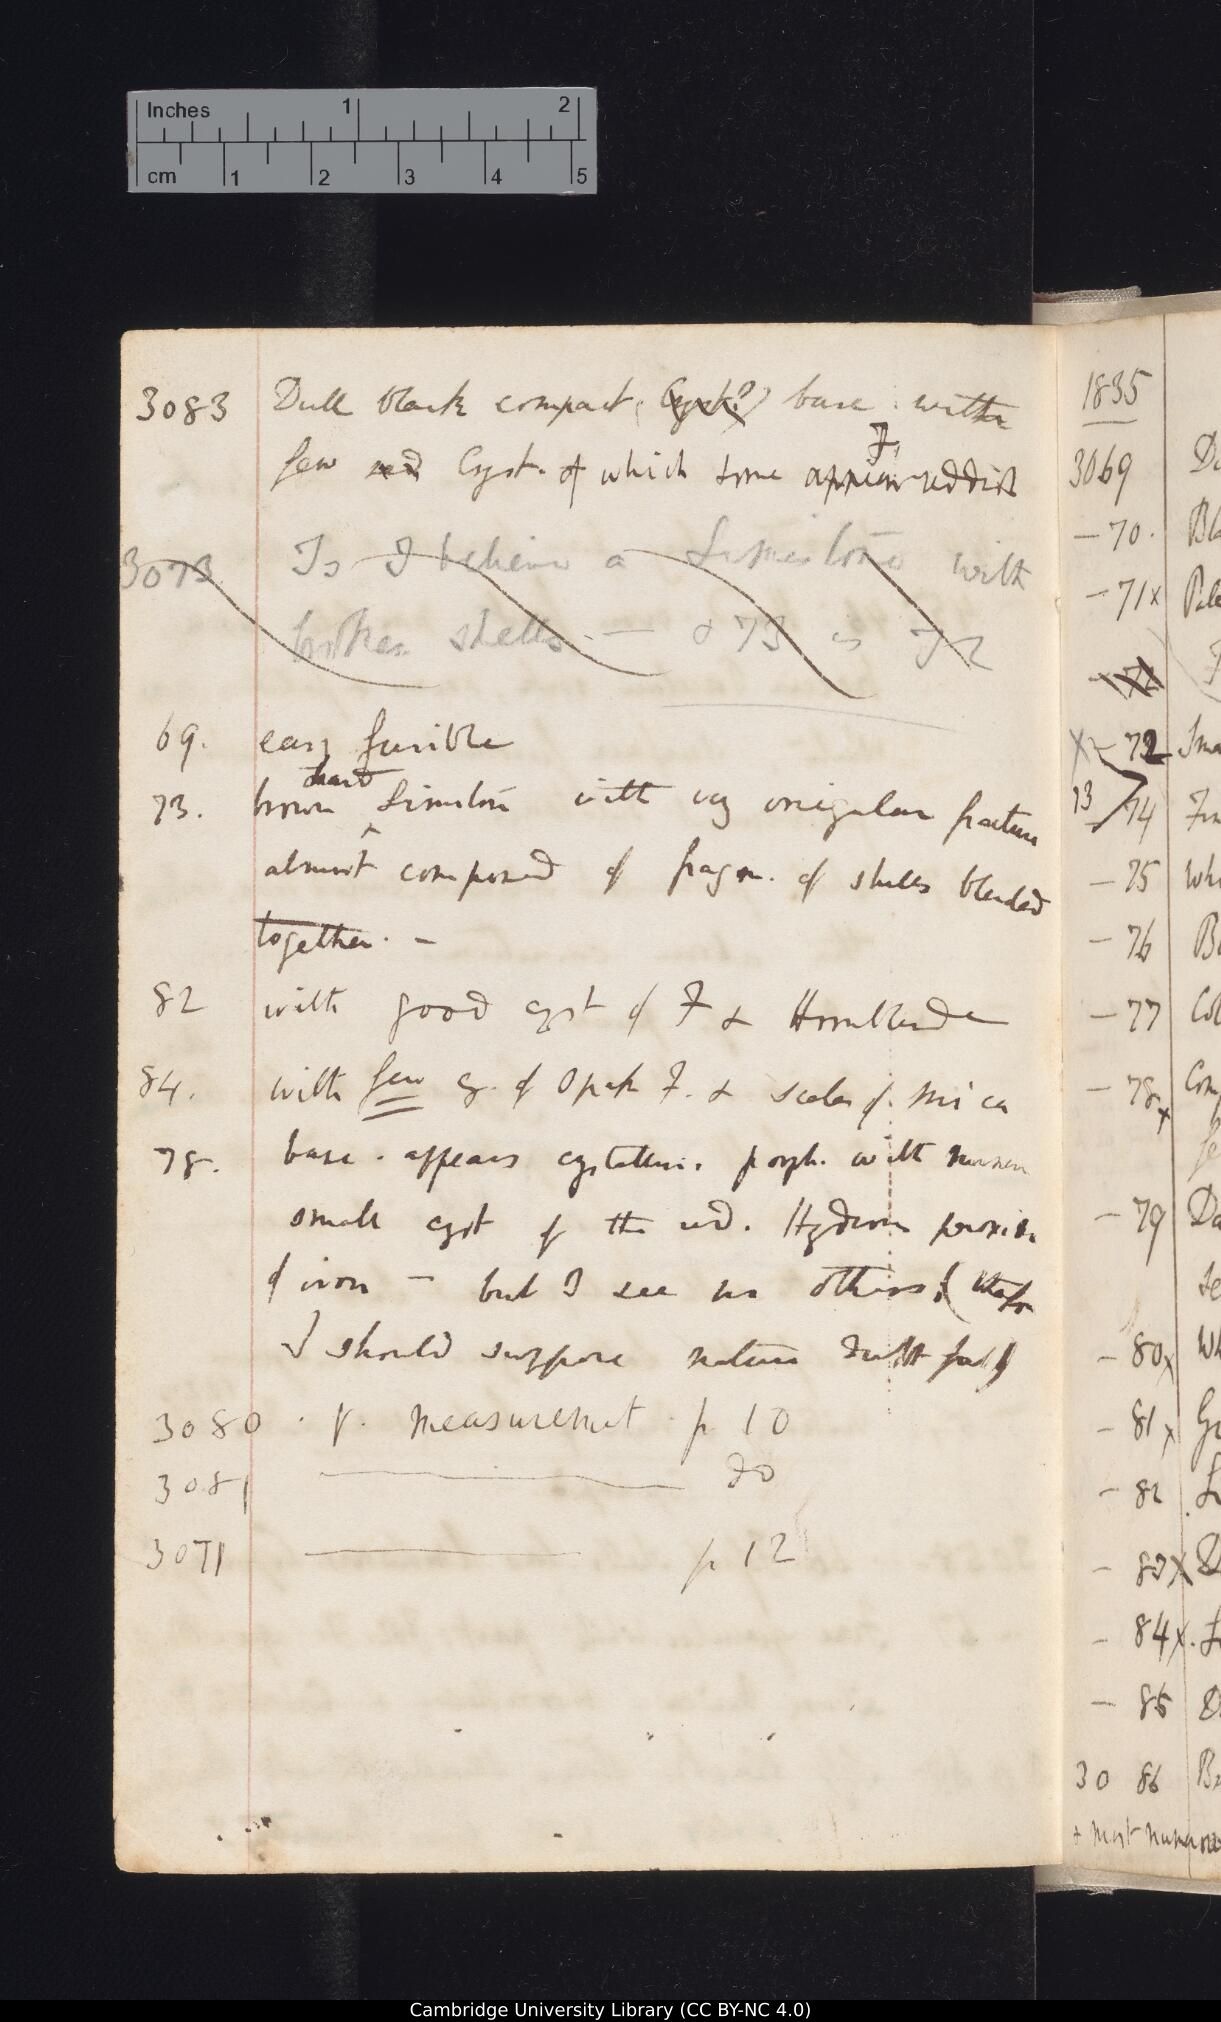 Inches 1 2
cm 1 2 3 4 5
3083 Dull black compact (Cryst?) base with
F.
few red Cryst. of which some appear reddish
3073 Is I believe a Limestone with
broken shells. — & 73 is 72
69. easy fusible
hard
73. brown Limestone with very irregular fracture
almost composed of fragm. of shells blended
together. —
82 with good cryst of F & Hornblende
84. with few cry. of opak F. & scales of mica
78. base. appears crystalline. porph. with numerous
small cryst of the red. Hydrous peroxide
of iron — but I see no others, (
I should suppose nature
3080 . V. measurement p 10
3081 ——— do
3071 ——— p 12
1835
3069
— 70.
— 71x
— 72
x — 72
73 74
— 75
— 76
— 77
— 78x
— 79
— 80x
— 81x
— 82
— 83x
— 84x.
— 85
30 86
+ most numerous
Cambridge University Library (CC BY-NC 4.0)